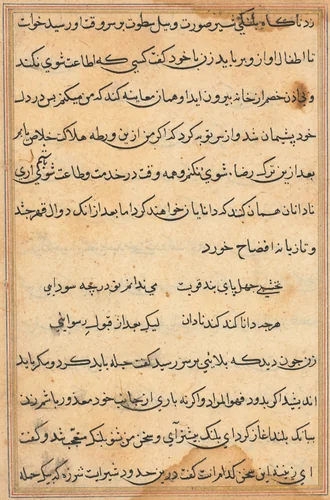 زد ناگاه پلنگی شیر صورت و پیل سطوت بر سر وقت او رسید خواست
تا اطفال او از و برباید زن با خود گفت کسی که اطاعت شوی نکند
و بی اذن خصم از خانه بیرون آید او همان معاینه کند که من میکنم پس در دل
خود پشیمان شد و از سر توبه کرد که اگر من ازین ورطه هلاکت خلاص یابم
بعد ازین ترک رضاء شوی نکنم و همه وقت در خدمت و طاعت شوی باشم آری
نادانان همان کنند که دانایان خواهند کرد اما بعد از آنک دوال قهر چند
و تازیانه افضاح خورد
نخشبی جهل پای بند قویست
می ندانم تو در چه سودایی
هرچه دانا کند کند نادان
لیک بعد از قبول رسوایی
زن چون دید که بلائی بر سر رسید گفت حیله باید کرد و مکر باید
اندیشید اگر بدود فهو المراد و اگر نه باری از جانب خود معذور باشم زن
ببانگ بلند آغاز کرد ای پلنگ بیشتر آی و سخن من بشنو پلنگ متعجب شد و گفت
ای زن چه سخن کدام است گفت درین حدود شیریست شرزه که یک حمله